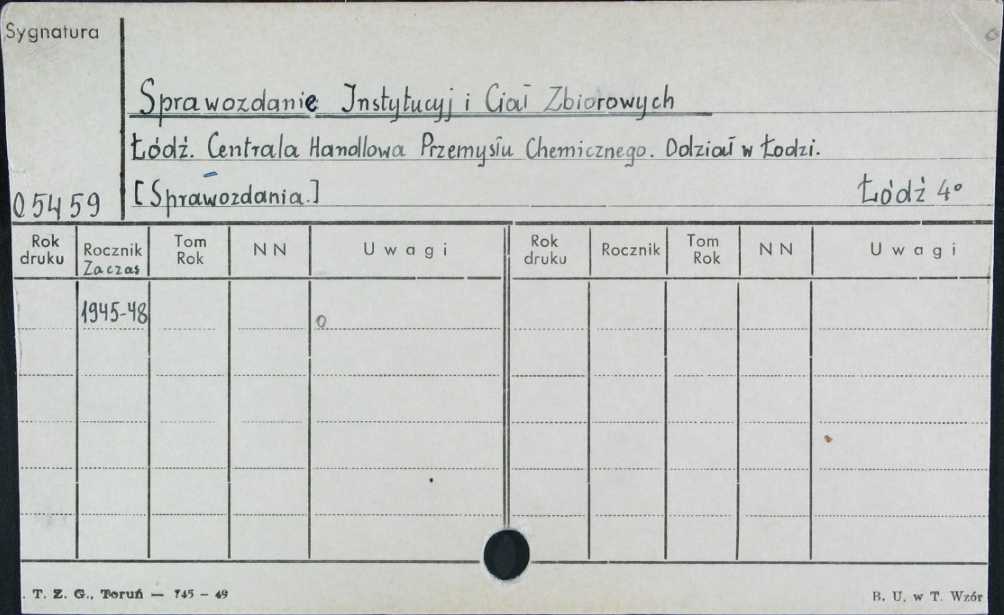 Sygnatura
Sprawozdanie Instytucyj i Ciał Zbiorowych
Łódź. Centrala Handlowa Przemysłu Chemicznego. Oddział w Łodzi.
05459
[Sprawozdania.]
Łódź 4°
Rok druku Rocznik Tom Rok NN Uwagi Rok druku Rocznik Tom Rok NN Uwagi
Za czas
1945-48
0
. T. Z. G., Toruń — 745 – 49
B. U. w T. Wzór